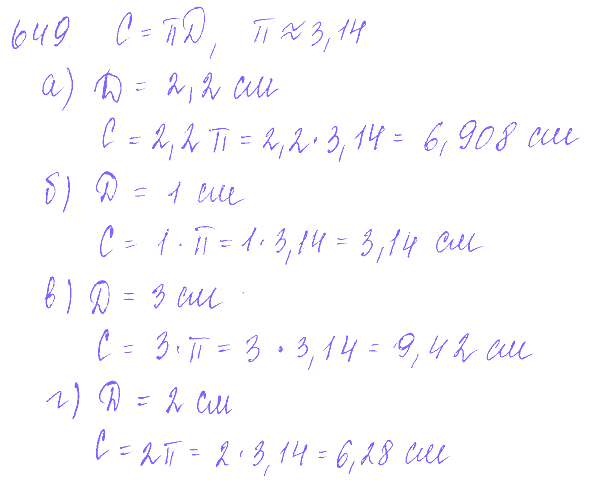 649 C = πD, π ≈ 3,14
а) D = 2,2 см
C = 2,2 π = 2,2 · 3,14 = 6,908 см
б) D = 1 см
C = 1 · π = 1 · 3,14 = 3,14 см
в) D = 3 см
C = 3 · π = 3 · 3,14 = 9,42 см
г) D = 2 см
C = 2π = 2 · 3,14 = 6,28 см